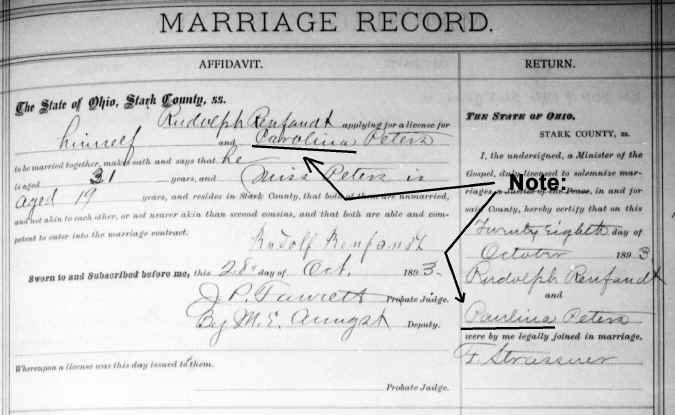 MARRIAGE RECORD.
AFFIDAVIT.
The State of Ohio, Stark County, ss.
Rudolph Renfandt applying for a license for
himself and Carolina Peters
to be married together, makes oath and says that he
is aged 31 years, and Miss Peters is
aged 19 years, and resides in Stark County, that both of them are unmarried,
and not akin to each other, or not nearer akin than second cousins, and that both are able and com-
petent to enter into the marriage contract.
Rudolf Renfandt
Sworn to and Subscribed before me, this 28 day of Oct. 1893.
J. P. Fawcett Probate Judge.
By M. E. Aungst Deputy.
Whereupon a license was this day issued to them.
Probate Judge.
RETURN.
THE STATE OF OHIO,
STARK COUNTY, ss.
I, the undersigned, a Minister of the
Gospel, duly licensed to solemnize mar-
riages, a Justice of the Peace, in and for
said County, hereby certify that on this
Note:
Twenty eighth day of
October 1893
Rudolph Renfandt
and
Paulina Peters
were by me legally joined in marriage.
F Strassner